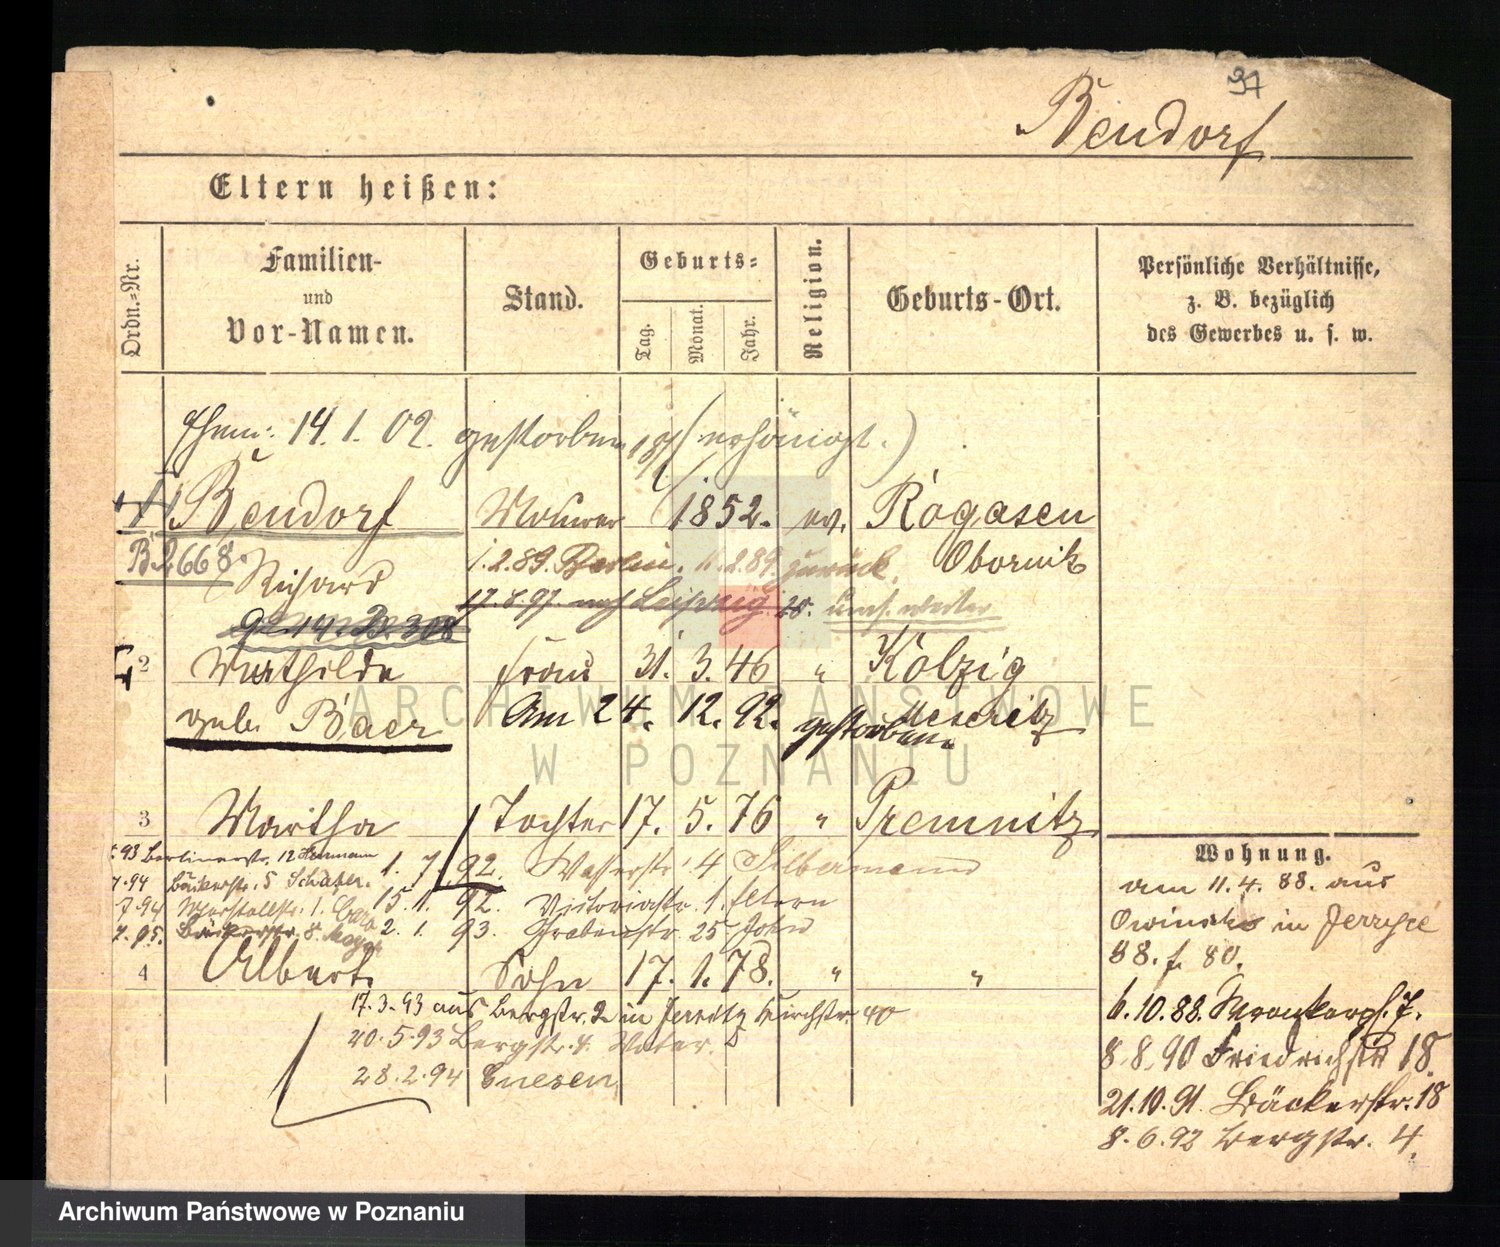 97
Bendorf
Eltern heißen:
Ordn.=Nr.
Familien-
und
Vor-Namen.
Stand.
Geburts=
Tag.
Monat.
Jahr.
Religion.
Geburts-Ort.
Persönliche Verhältnisse,
z. B. bezüglich
des Gewerbes u. s. w.
14. 1. 02. gestorben (erhängt.)
Bendorf Maurer 1852. ev. Rogasen
B 2668. Richard 1.2.89. Berlin. 2.89. zurück. Obornik
nach Leipzig
2 Mathilde Frau 31. 3. 46 " Kolzig
geb. Baer Am 24. 12. 92. gestorben. Meseritz
3 Martha Tochter 17. 5. 76 " Premnitz
93 Berlinerstr. 12 Hermann 1. 7. 92. Wasserstr. 4 Silbermann
94 Bäckerstr. 5 Schäfer. 15. 1. 92. Victoriastr. 1. Eltern
7.94 Marstallstr. 1. 2. 1. 93. Grabenstr. 25
95. Bäckerstr. 8.
4 Albert. Sohn 17. 1. 78. " "
17.3.93 aus Bergstr. 2 in Jersitz Kirchstr. 40
20.5.93 Bergstr. 4. Vater.
28.2.94 Gnesen
Wohnung.
am 11.4.88. aus
Owinsk in
88. f. 80.
6.10.88. 7.
8.8.90 Friedrichstr 18.
21.10.91. Bäckerstr. 18
8.6.92 Bergstr. 4.
ARCHIWUM PAŃSTWOWE
W POZNANIU
Archiwum Państwowe w Poznaniu